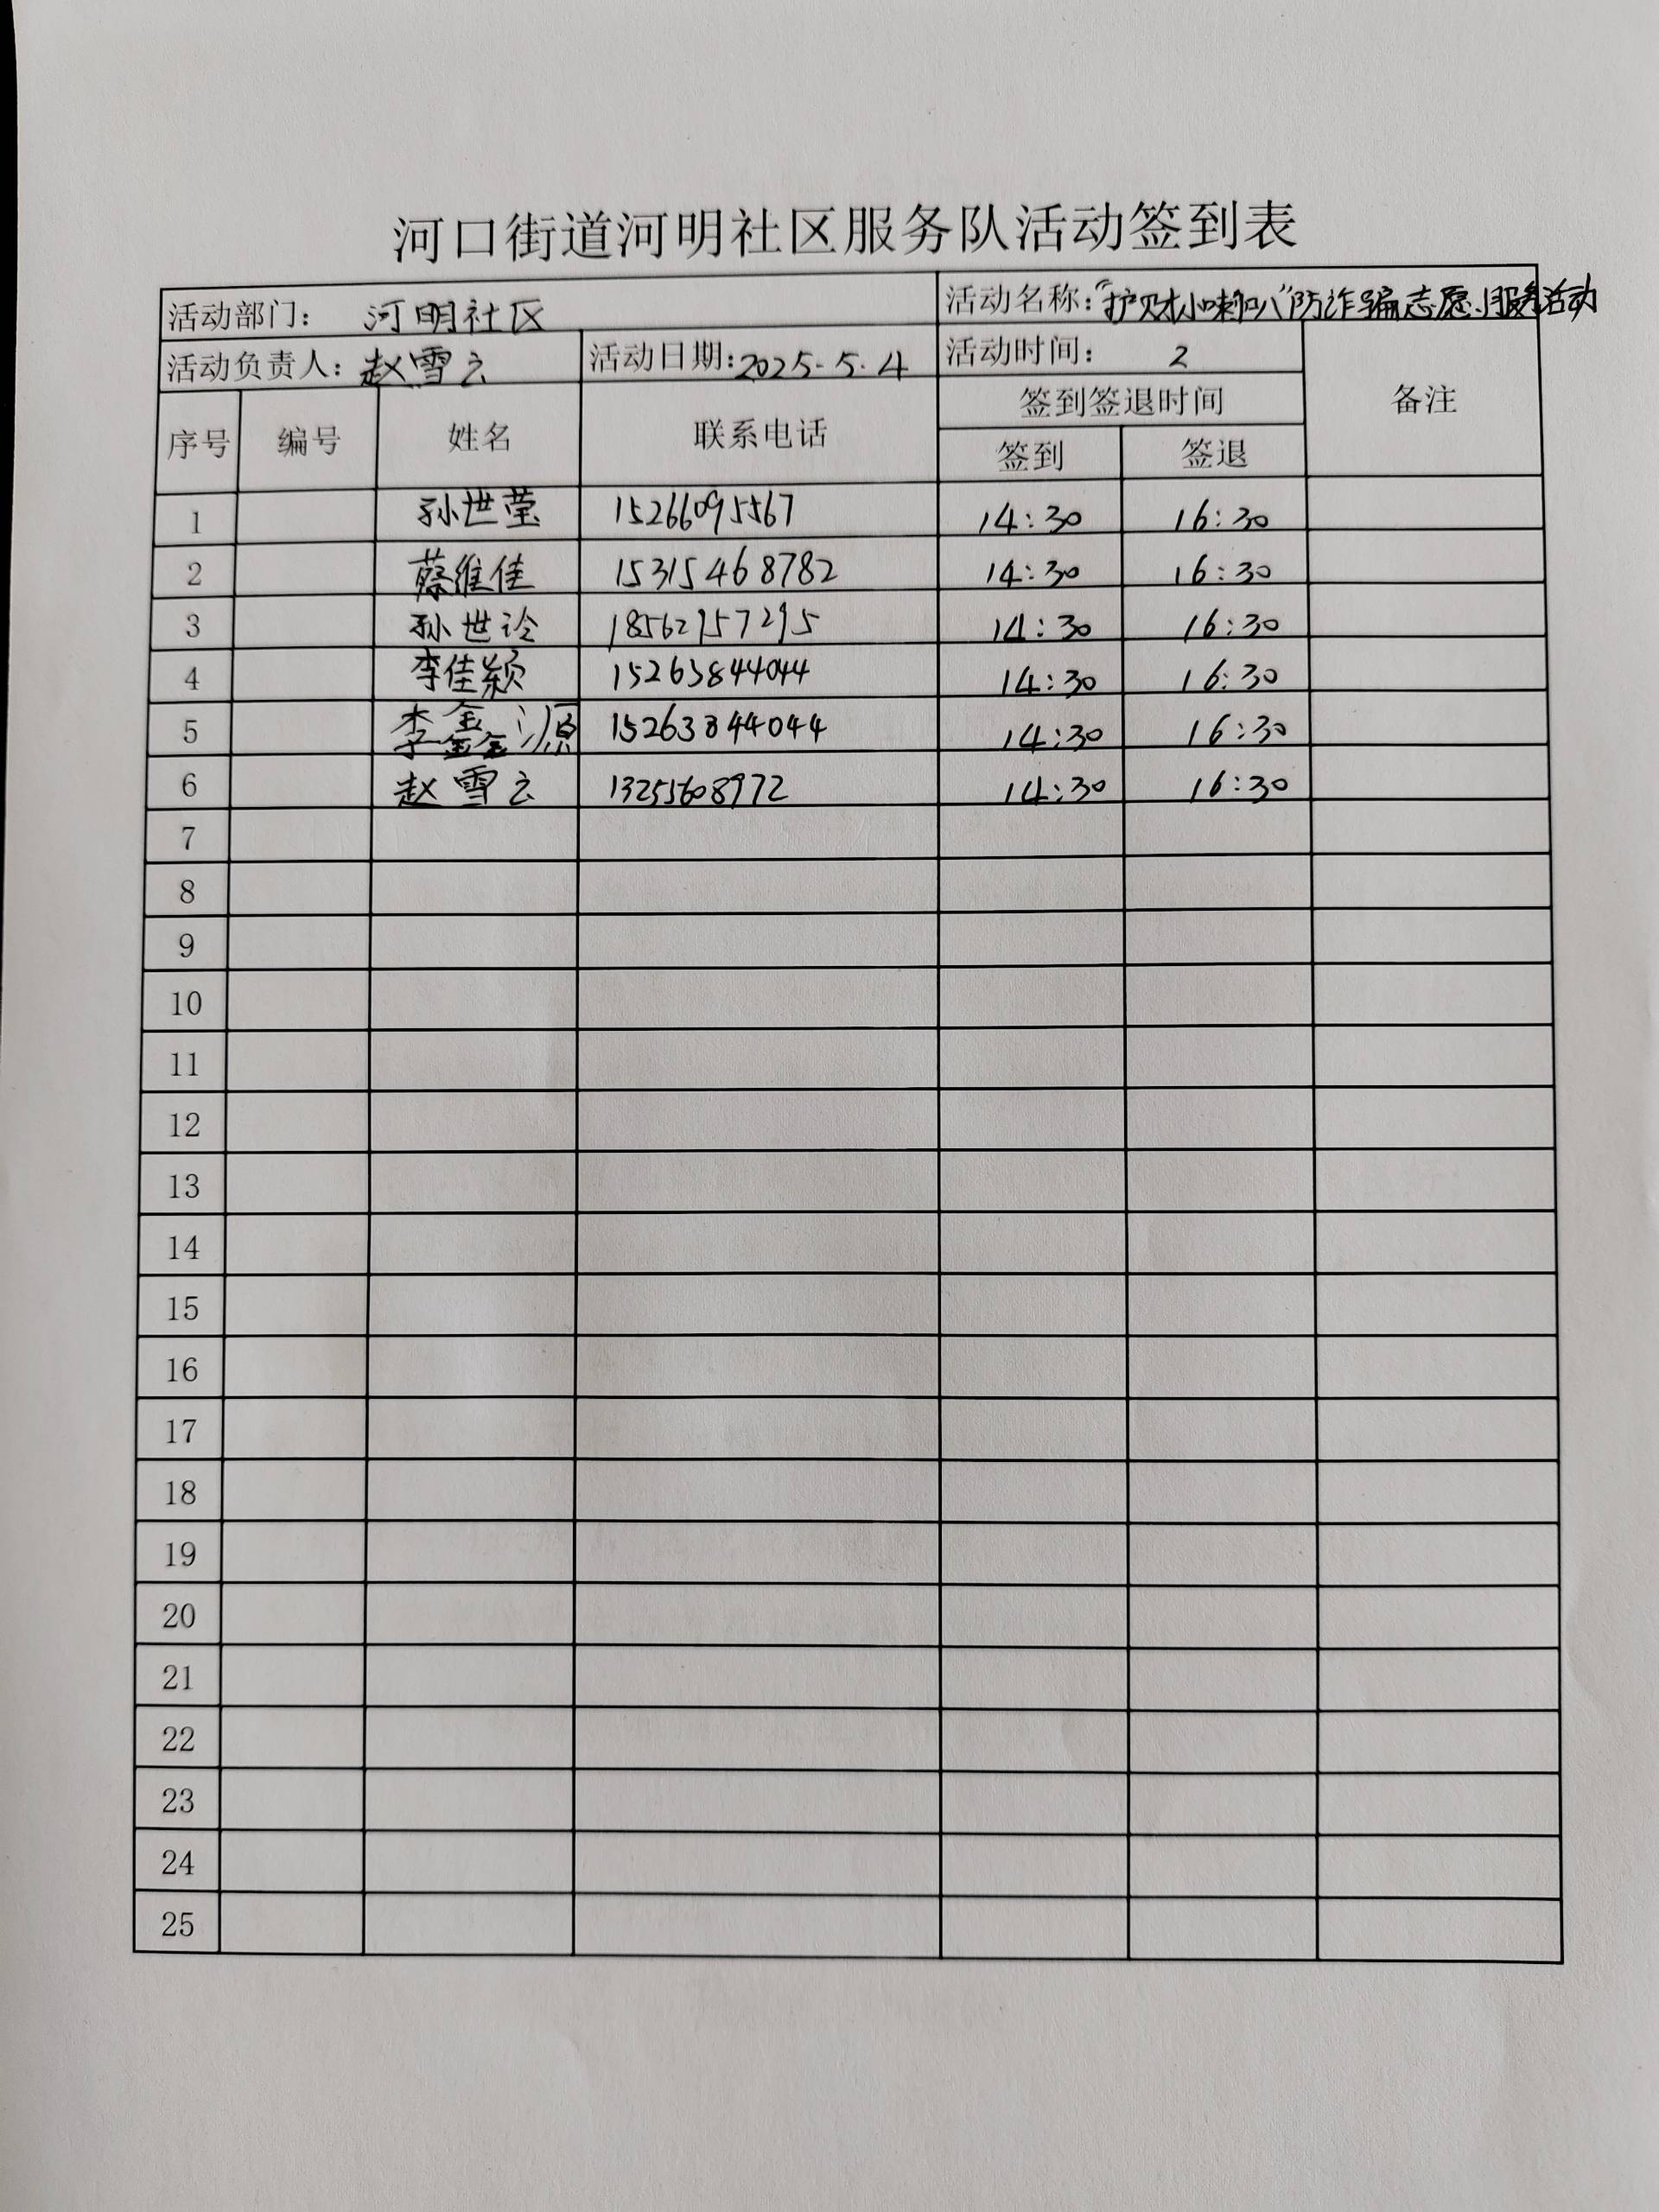 河口街道河明社区服务队活动签到表
活动部门： 河明社区 活动名称："护财小喇叭"防诈骗志愿服务活动
活动负责人：赵雪云 活动日期：2025.5.4 活动时间： 2
序号 编号 姓名 联系电话 签到签退时间 备注
签到 签退
1 孙世莹 15266095567 14:30 16:30
2 蔡维佳 15315468782 14:30 16:30
3 孙世诠 18562957295 14:30 16:30
4 李佳颖 15263844044 14:30 16:30
5 李鑫源 15263844044 14:30 16:30
6 赵雪云 13255608972 14:30 16:30
7
8
9
10
11
12
13
14
15
16
17
18
19
20
21
22
23
24
25